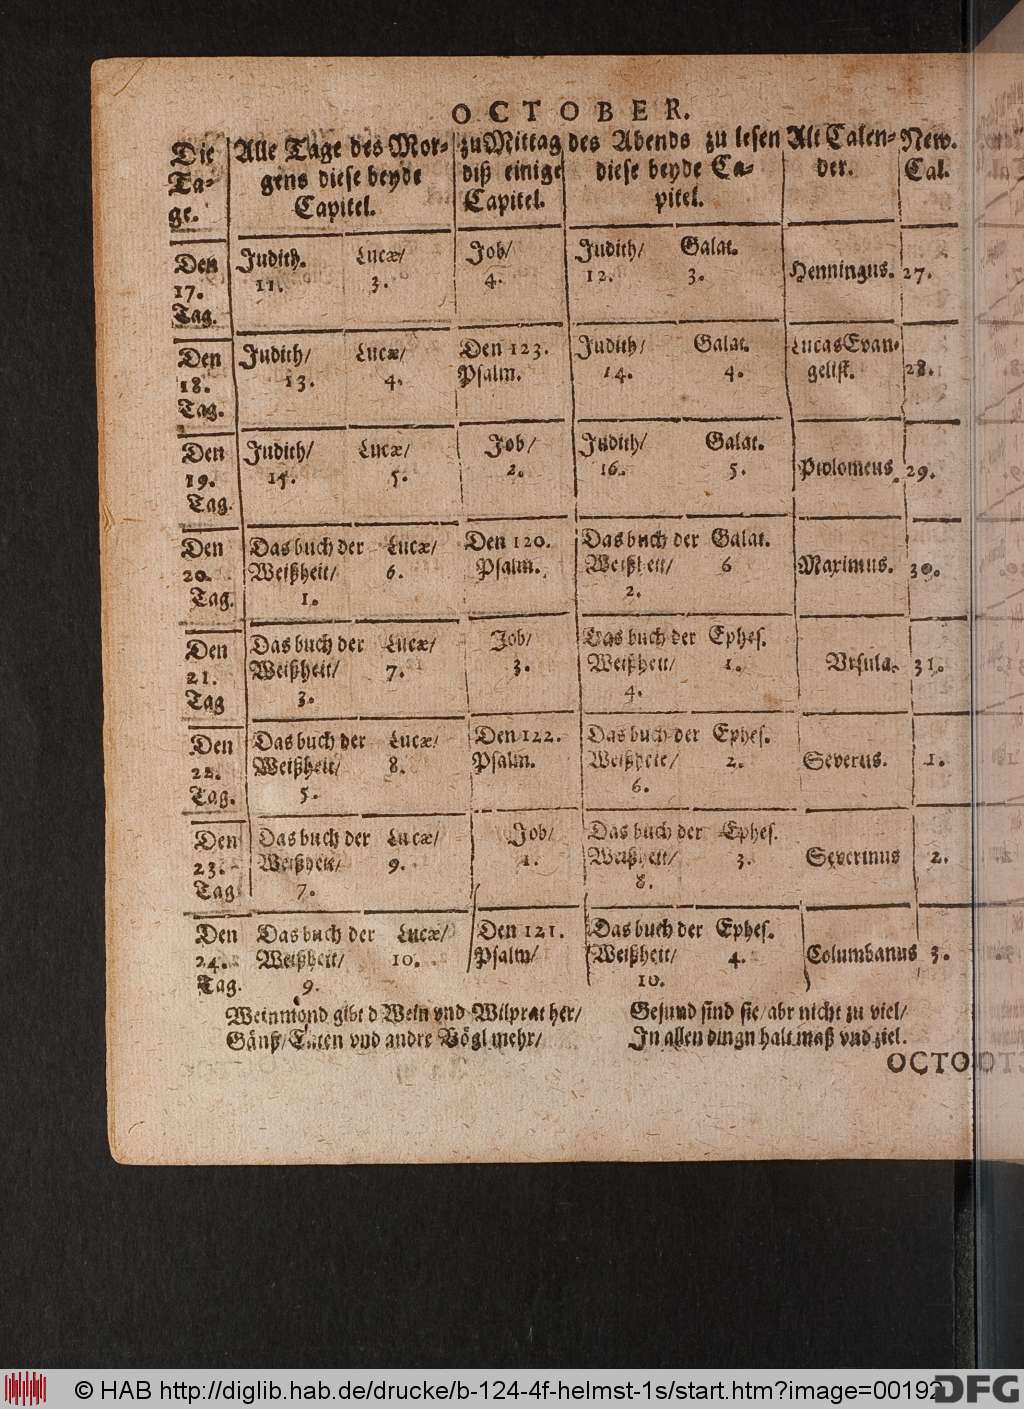 OCTOBER.
Die Alle Tage des Mor- zu Mittag des Abends zu lesen Alt Calen- New.
Ta- gens diese beyde diß einige diese beyde Ca- der. Cal.
ge. Capitel. Capitel. pitel.
Den Judith. Lucæ/ Job/ Judith/ Galat.
17. 11. 3. 4. 12. 3. Henningus. 27.
Tag.
Den Judith/ Lucæ/ Den 123. Judith/ Galat. Lucas Evan-
18. 13. 4. Psalm. 14. 4. gelist. 28.
Tag.
Den Judith/ Lucæ/ Job/ Judith/ Galat.
19. 15. 5. 2. 16. 5. Ptolomeus. 29.
Tag.
Den Das buch der Lucæ/ Den 120. Das buch der Galat.
20. Weißheit/ 6. Psalm. Weißheit/ 6 Maximus. 30.
Tag. 1. 2.
Den Das buch der Lucæ/ Job/ Das buch der Ephes.
21. Weißheit/ 7. 3. Weißheit/ 1. Vrsula. 31.
Tag 3. 4.
Den Das buch der Lucæ/ Den 122. Das buch der Ephes.
22. Weißheit/ 8. Psalm. Weißheit/ 2. Severus. 1.
Tag. 5. 6.
Den Das buch der Lucæ/ Job/ Das buch der Ephes.
23. Weißheit/ 9. 1. Weißheit/ 3. Severinus 2.
Tag 7. 8.
Den Das buch der Lucæ/ Den 121. Das buch der Ephes.
24. Weißheit/ 10. Psalm/ Weißheit/ 4. Columbanus 3.
Tag. 9. 10.
Weinmond gibt d Wein vnd Wilprat her/
Gänß/ Enten vnd andre Vögl mehr/
Gesund sind sie/ abr nicht zu viel/
In allen dingn halt maß vnd ziel.
OCTO
© HAB http://diglib.hab.de/drucke/b-124-4f-helmst-1s/start.htm?image=00192
DFG